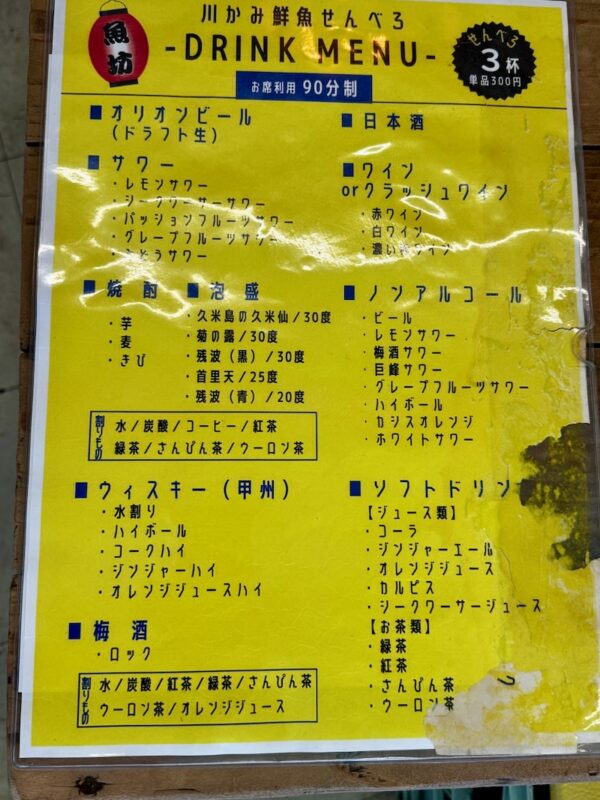 魚坊
川かみ鮮魚せんべろ
-DRINK MENU-
お席利用 90分制
せんべろ
3杯
単品300円
■オリオンビール
(ドラフト生)
■サワー
・レモンサワー
・シークワーサーサワー
・パッションフルーツサワー
・グレープフルーツサワー
・ぶどうサワー
■焼酎
・芋
・麦
・きび
■泡盛
・久米島の久米仙/30度
・菊の露/30度
・残波(黒)/30度
・首里天/25度
・残波(青)/20度
割りもの
水/炭酸/コーヒー/紅茶
緑茶/さんぴん茶/ウーロン茶
■ウィスキー(甲州)
・水割り
・ハイボール
・コークハイ
・ジンジャーハイ
・オレンジジュースハイ
■梅酒
・ロック
割りもの
水/炭酸/紅茶/緑茶/さんぴん茶
ウーロン茶/オレンジジュース
■日本酒
■ワイン
orクラッシュワイン
・赤ワイン
・白ワイン
・濃い赤ワイン
■ノンアルコール
・ビール
・レモンサワー
・梅酒サワー
・巨峰サワー
・グレープフルーツサワー
・ハイボール
・カシスオレンジ
・ホワイトサワー
■ソフトドリン
【ジュース類】
・コーラ
・ジンジャーエール
・オレンジジュース
・カルピス
・シークワーサージュース
【お茶類】
・緑茶
・紅茶
・さんぴん茶
・ウーロン茶